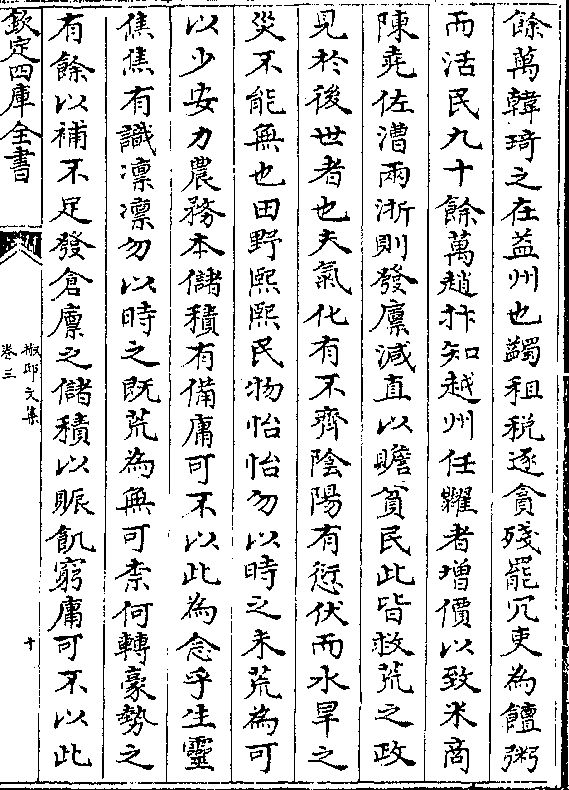 餘萬韓琦之在益州也蠲租税逐貪殘罷冗吏為饘粥
而活民九十餘萬趙抃知越州任糶者増價以致米商
陳堯佐漕兩浙則發廪減直以贍貧民此皆救荒之政
見於後世者也夫氣化有不齊陰陽有愆伏而水旱之
災不能無也田野熙熙民物怡怡勿以時之未荒為可
以少安力農務本儲積有備庸可不以此為念乎生靈
焦焦有識凛凛勿以時之既荒為無可柰何轉豪勢之
有餘以補不足發倉廪之儲積以賑飢窮庸可不以此
欽定四庫全書
椒邱文集
卷三
十